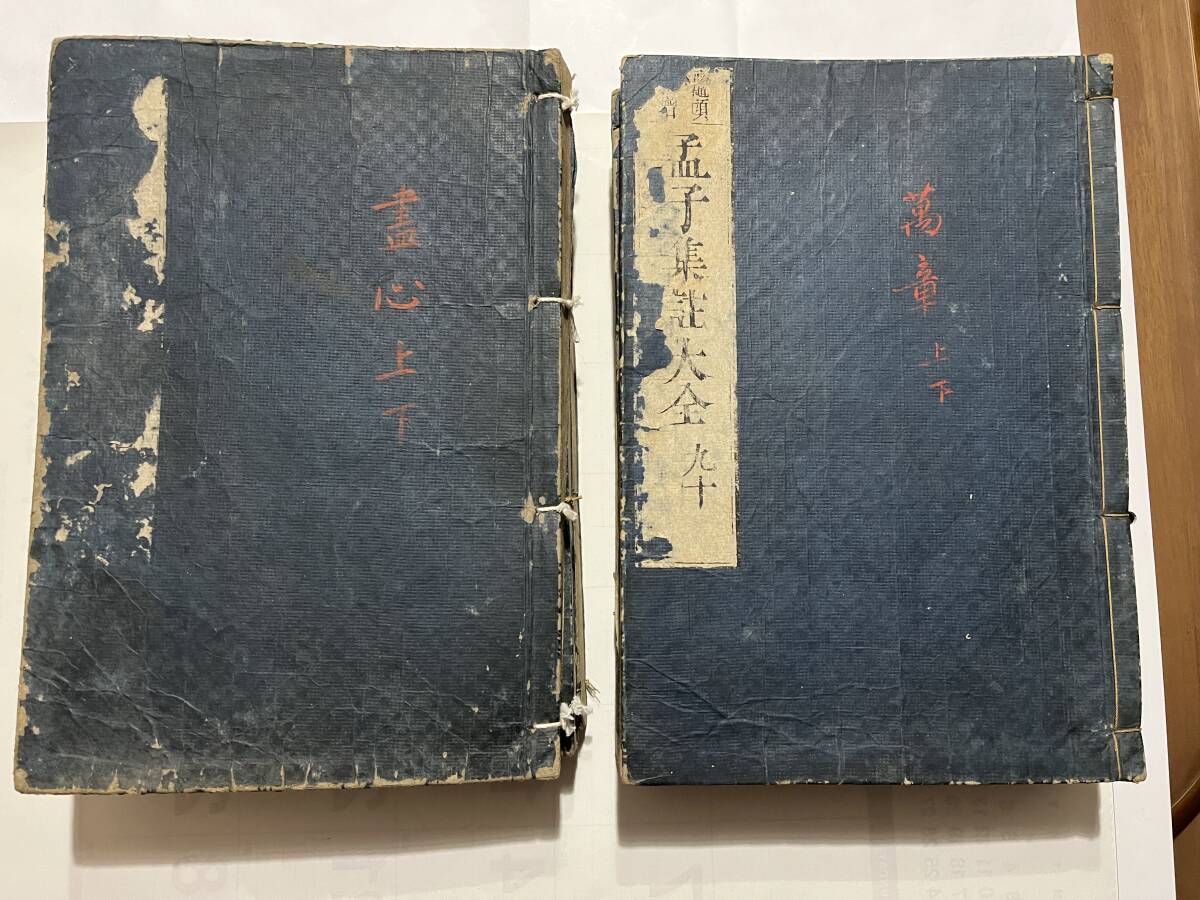 盡心上下
鼇頭
孟子集註大全 九十
萬章 上下